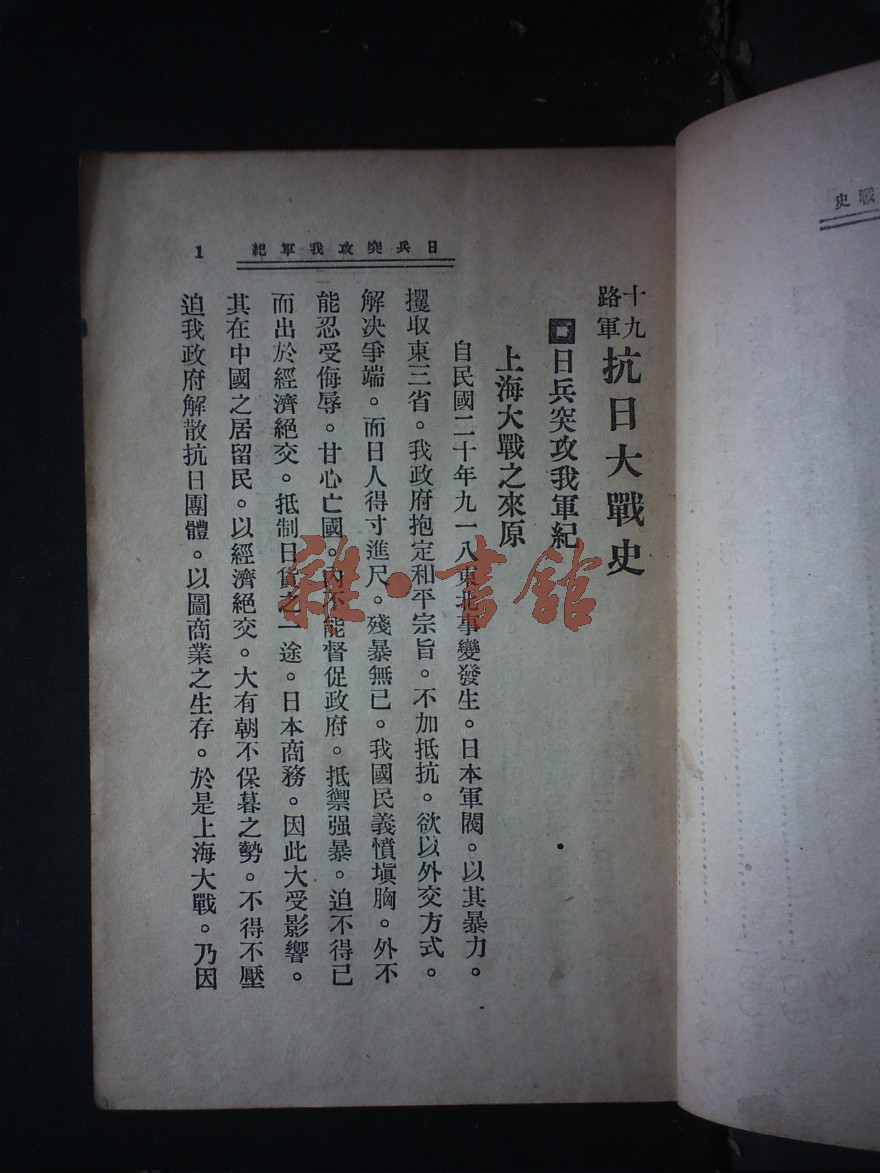 戰史
日兵突攻我軍紀
1
十九路軍 抗日大戰史
日兵突攻我軍紀
上海大戰之來原
自民國二十年九一八東北事變發生。日本軍閥。以其暴力。
攫取東三省。我政府抱定和平宗旨。不加抵抗。欲以外交方式。
解决爭端。而日人得寸進尺。殘暴無已。我國民義憤塡胸。外不
能忍受侮辱。甘心亡國。內不能督促政府。抵禦强暴。迫不得已
而出於經濟絕交。抵制日貨之一途。日本商務。因此大受影響。
其在中國之居留民。以經濟絕交。大有朝不保暮之勢。不得不壓
迫我政府解散抗日團體。以圖商業之生存。於是上海大戰。乃因
雜·書館